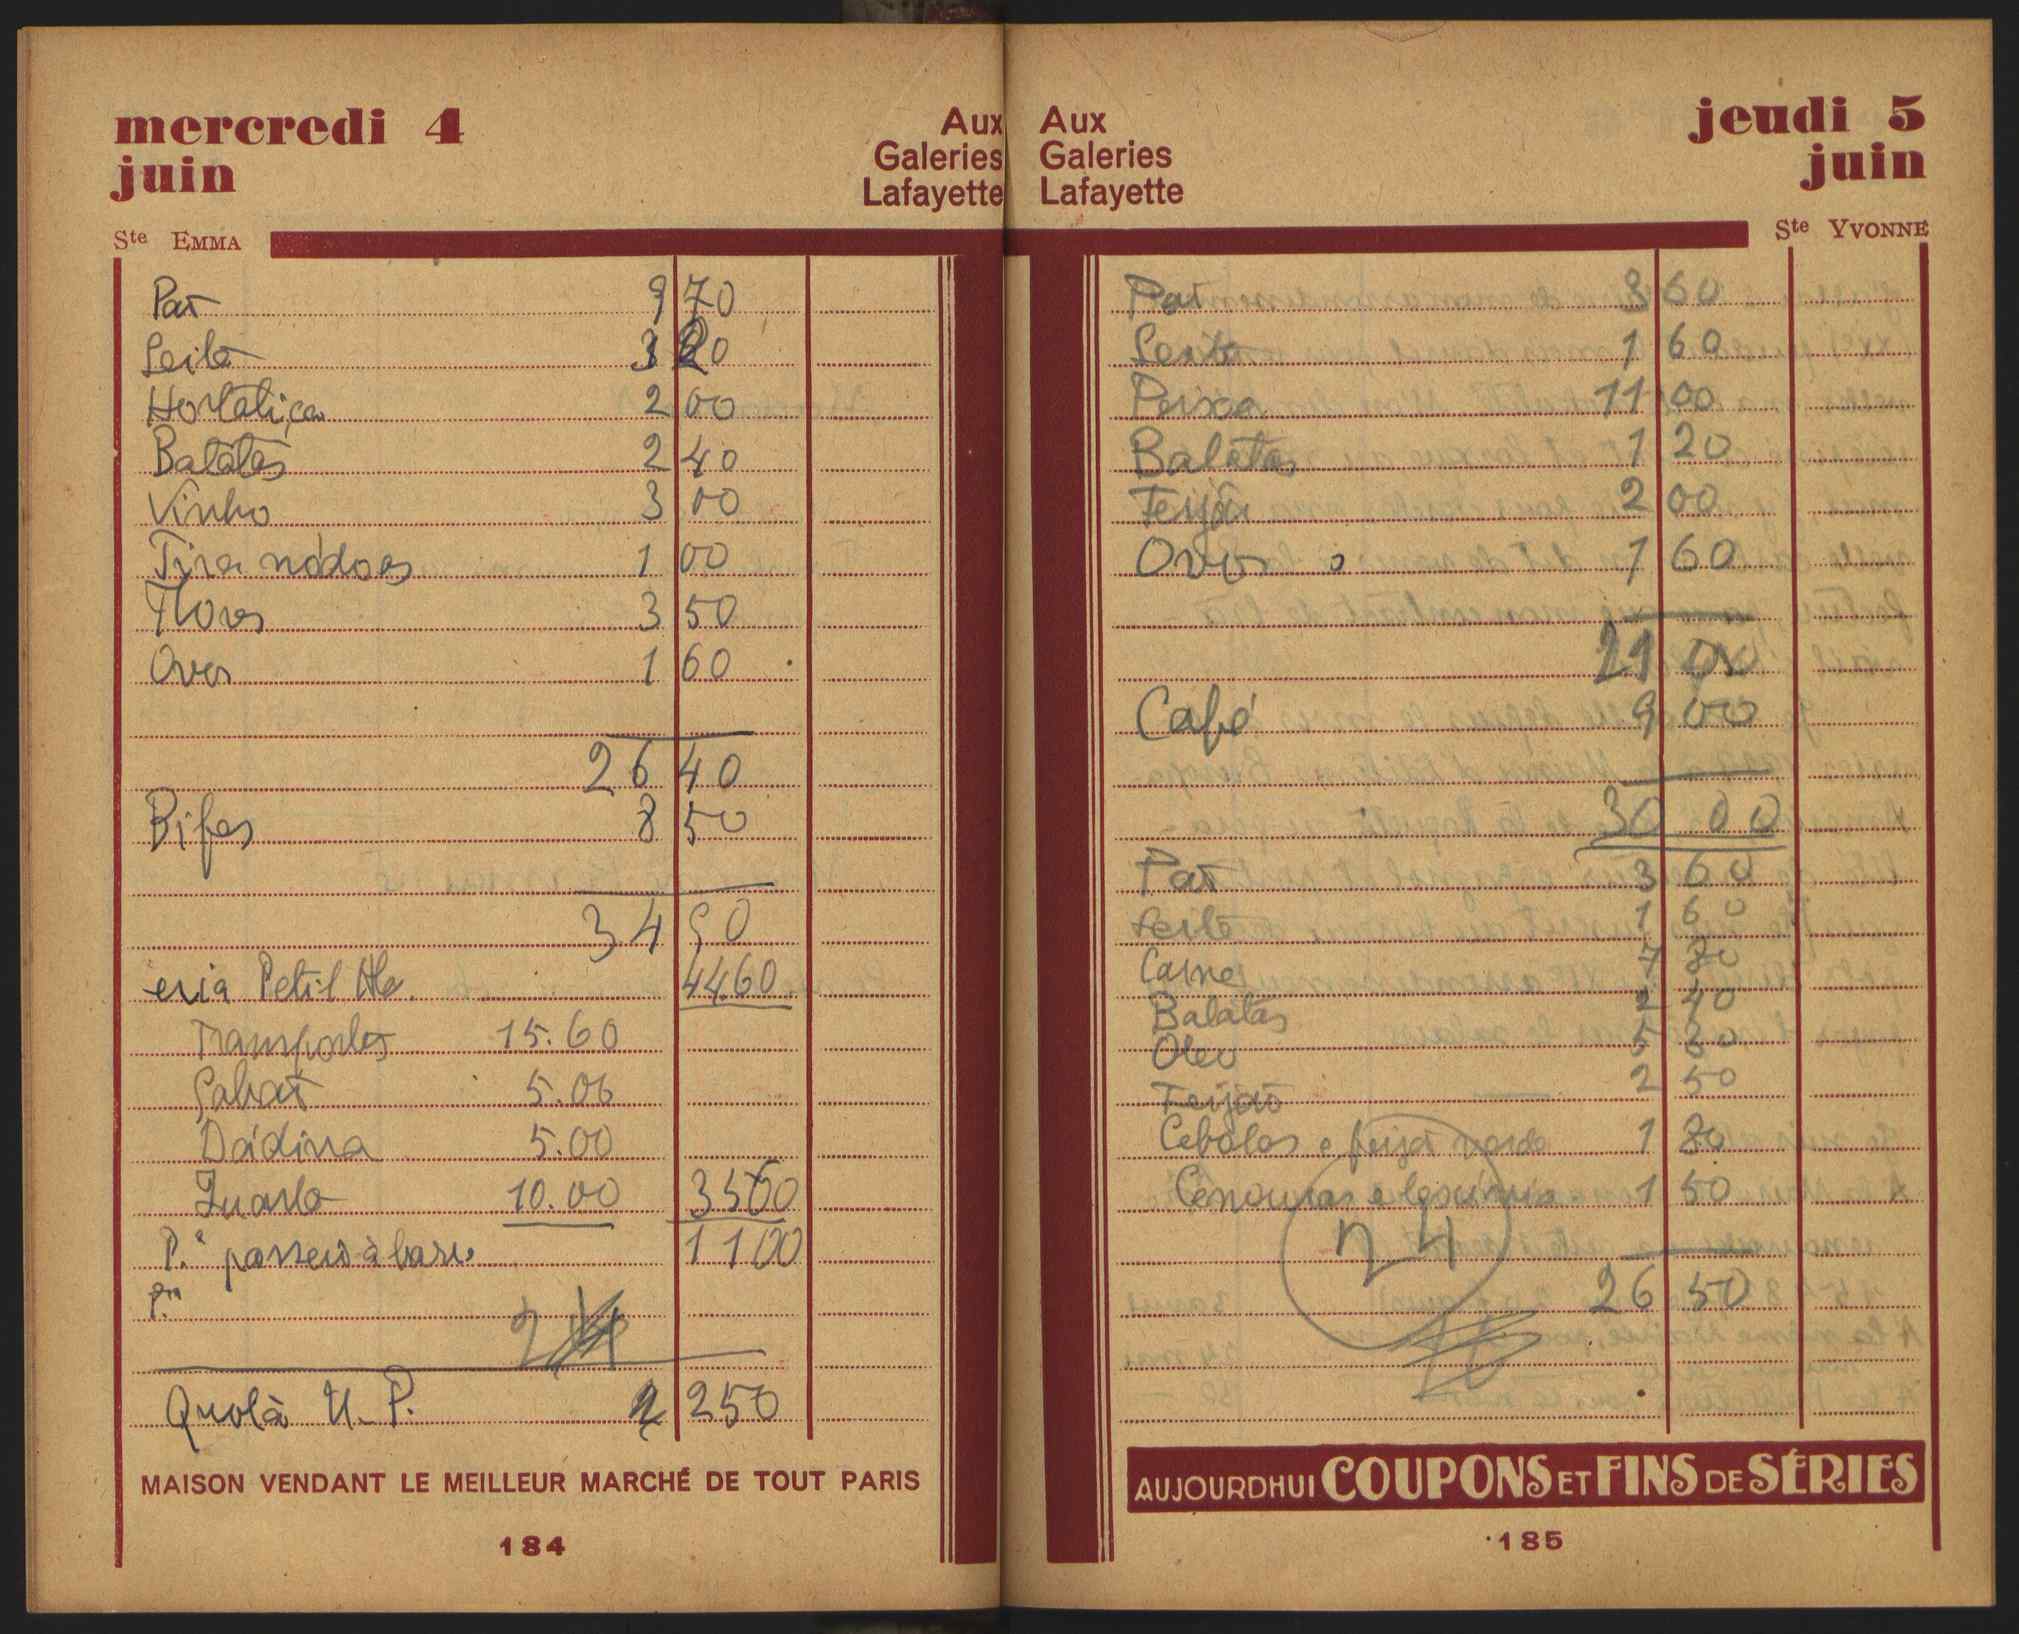 mercredi 4
juin
Aux
Galeries
Lafayette
Ste EMMA
Pat 9 70
Leite 3 20
Hortaliça 2 00
Batatas 2 40
Vinho 3 00
Tira nódoas 1 00
Flores 3 50
Ovos 1 60
26 40
Bifes 8 50
34 90
Petit 44.60
Transportes 15.60
5.00
Dádiva 5.00
Quarto 10.00 3560
passeio à 1100
Quota U. P. 2 250
MAISON VENDANT LE MEILLEUR MARCHÉ DE TOUT PARIS
184
Aux
Galeries
Lafayette
jeudi 5
juin
Ste YVONNE
Pat 3 60
Leite 1 60
Peixe 11 00
Batatas 1 20
Feijão 2 00
Ovos 1 60
21 00
Café 9 00
30 00
Pat 3 60
Leite 1 60
Carne 7 80
Batatas 2 40
Oleo 5 80
Feijão 2 50
Cebolas e feijão verde 1 80
Cenouras e 1 50
24
26 50
AUJOURDHUI COUPONS ET FINS DE SÉRIES
185